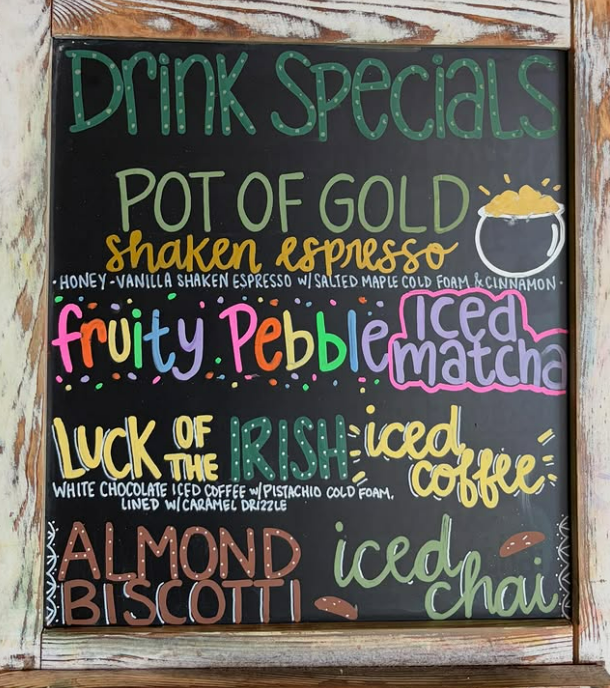 Drink Specials
POT OF GOLD
shaken espresso
·HONEY-VANILLA SHAKEN ESPRESSO W/ SALTED MAPLE COLD FOAM & CINNAMON·
fruity Pebble iced matcha
LUCK OF THE IRISH iced coffee
WHITE CHOCOLATE ICED COFFEE W/ PISTACHIO COLD FOAM,
LINED W/ CARAMEL DRIZZLE
ALMOND BISCOTTI iced chai